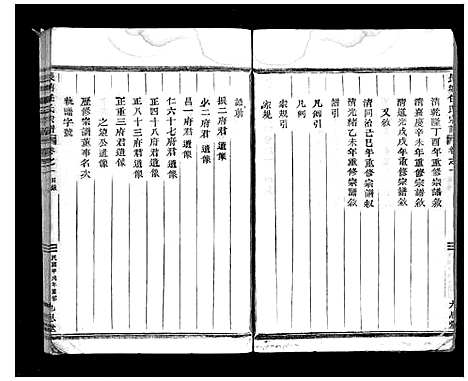 清乾隆丁酉年重修宗譜敘
清嘉慶辛未年重修宗譜敘
清道光戊戌年重修宗譜敘
又敘
清同治己巳年重修宗譜敘
清光緒乙未年重修宗譜敘
譜引
凡例
凡例
家規引
家規
譜類
振二府君遺像
必二府君遺像
昌一府君遺像
仁六十七府君遺像
正四十八府君遺像
正八十三府君遺像
正重三府君遺像
之燦公遺像
歷修宗譜董事名次
執譜字號